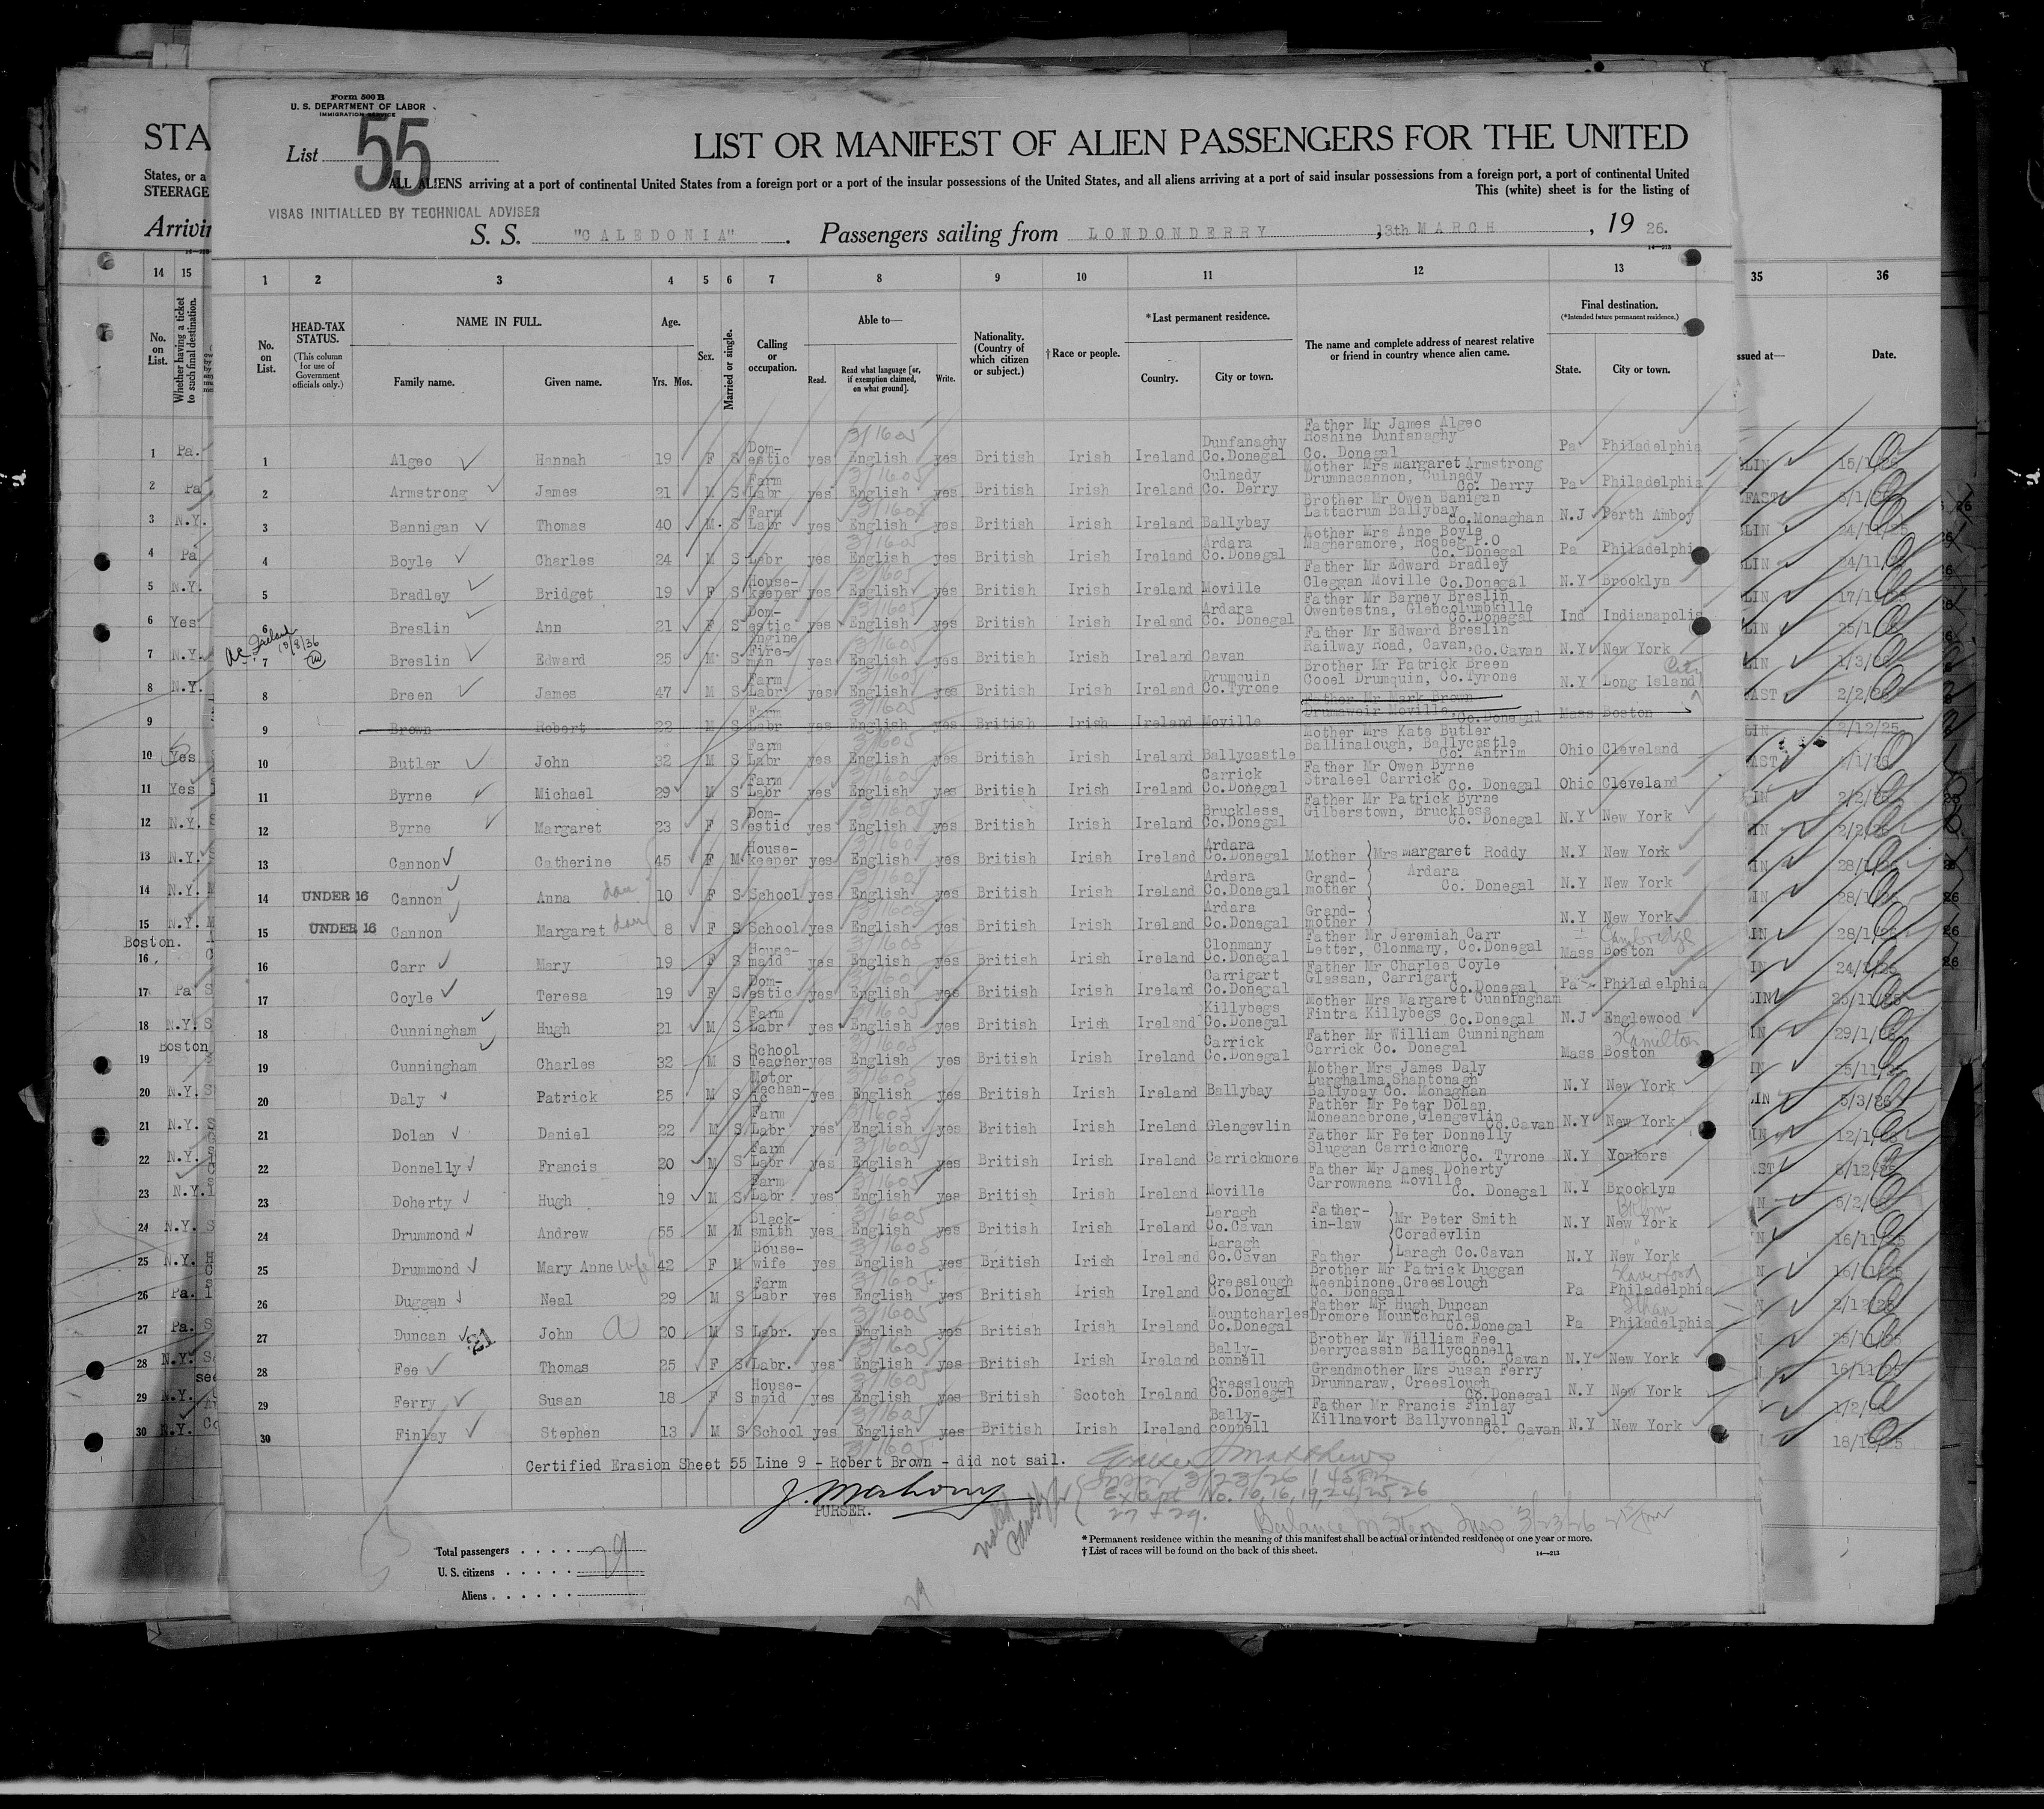 Form 500 B
U. S. DEPARTMENT OF LABOR
IMMIGRATION SERVICE
List 55
LIST OR MANIFEST OF ALIEN PASSENGERS FOR THE UNITED
STA
States, or a
STEERAGE
Arrivin
ALL ALIENS arriving at a port of continental United States from a foreign port or a port of the insular possessions of the United States, and all aliens arriving at a port of said insular possessions from a foreign port, a port of continental United
This (white) sheet is for the listing of
VISAS INITIALLED BY TECHNICAL ADVISER
S. S. "CALEDONIA". Passengers sailing from LONDONDERRY, 13th MARCH, 1926.
14 15 1 2 3 4 5 6 7 8 9 10 11 12 13 35 36
No. on List.
Whether having a ticket to such final destination.
No. on List.
HEAD-TAX STATUS.
(This column for use of Government officials only.)
NAME IN FULL.
Family name. Given name.
Age.
Yrs. Mos.
Sex.
Married or single.
Calling or occupation.
Able to—
Read. Read what language [or, if exemption claimed, on what ground]. Write.
Nationality. (Country of which citizen or subject.)
†Race or people.
*Last permanent residence.
Country. City or town.
The name and complete address of nearest relative or friend in country whence alien came.
Final destination.
(*Intended future permanent residence.)
State. City or town.
ssued at— Date.
1 Pa. 1 Algeo Hannah 19 F S Dom-estic yes English yes British Irish Ireland Dunfanaghy Co.Donegal Father Mr James Algeo Roshine Dunfanaghy Co. Donegal Pa Philadelphia
2 Pa 2 Armstrong James 21 M S Farm Labr yes English yes British Irish Ireland Culnady Co. Derry Mother Mrs Margaret Armstrong Drumnacannon, Culnady Co. Derry Pa Philadelphia
3 N.Y. 3 Bannigan Thomas 40 M. S Farm Labr yes English yes British Irish Ireland Ballybay Brother Mr Owen Banigan Lattacrum Ballybay Co.Monaghan N.J Perth Amboy
4 Pa 4 Boyle Charles 24 M S Labr yes English yes British Irish Ireland Ardara Co.Donegal Mother Mrs Anne Boyle Magheramore, Rosbeg P.O Co. Donegal Pa Philadelphi
5 N.Y. 5 Bradley Bridget 19 F S House-keeper yes English yes British Irish Ireland Moville Father Mr Edward Bradley Cleggan Moville Co.Donegal N.Y Brooklyn
6 Yes 6 Breslin Ann 21 F S Dom-estic yes English yes British Irish Ireland Ardara Co. Donegal Father Mr Barney Breslin Owentestna, Glencolumbkille Co.Donegal Ind Indianapolis
7 N.Y. 7 Breslin Edward 25 M S Engine Fire-man yes English yes British Irish Ireland Cavan Father Mr Edward Breslin Railway Road, Cavan, Co.Cavan N.Y New York
8 N.Y. 8 Breen James 47 M S Farm Labr yes English yes British Irish Ireland Drumquin Co.Tyrone Brother Mr Patrick Breen Cooel Drumquin, Co.Tyrone N.Y Long Island City
9 9 Brown Robert 22 M S Farm Labr yes English yes British Irish Ireland Moville Father Mr Mark Brown Drumaweir Moville, Co.Donegal Mass Boston 2/12/25
10 Yes 10 Butler John 32 M S Farm Labr yes English yes British Irish Ireland Ballycastle Mother Mrs Kate Butler Ballinalough, Ballycastle Co. Antrim Ohio Cleveland
11 Yes 11 Byrne Michael 29 M S Farm Labr yes English yes British Irish Ireland Carrick Co.Donegal Father Mr Owen Byrne Straleel Carrick Co. Donegal Ohio Cleveland
12 N.Y. 12 Byrne Margaret 23 F S Dom-estic yes English yes British Irish Ireland Bruckless Co.Donegal Father Mr Patrick Byrne Gilberstown, Bruckless Co. Donegal N.Y New York
13 N.Y. 13 Cannon Catherine 45 F M House-keeper yes English yes British Irish Ireland Ardara Co.Donegal Mother Mrs Margaret Roddy N.Y New York
14 N.Y. 14 UNDER 16 Cannon Anna dau 10 F S School yes English yes British Irish Ireland Ardara Co.Donegal Grand-mother Ardara Co. Donegal N.Y New York
15 N.Y. 15 UNDER 16 Cannon Margaret dau 8 F S School yes English yes British Irish Ireland Ardara Co.Donegal Grand-mother N.Y New York
Boston. 16 16 Carr Mary 19 F S House-maid yes English yes British Irish Ireland Clonmany Co.Donegal Father Mr Jeremiah Carr Letter, Clonmany, Co.Donegal Mass Boston Cambridge
17 Pa 17 Coyle Teresa 19 F S Dom-estic yes English yes British Irish Ireland Carrigart Co.Donegal Father Mr Charles Coyle Glassan, Carrigart Co.Donegal Pa Philadelphia
18 N.Y. 18 Cunningham Hugh 21 M S Farm Labr yes English yes British Irish Ireland Killybegs Co.Donegal Mother Mrs Margaret Cunningham Fintra Killybegs Co.Donegal N.J Englewood
Boston 19 19 Cunningham Charles 32 M S School Teacher yes English yes British Irish Ireland Carrick Co.Donegal Father Mr William Cunningham Carrick Co. Donegal Mass Boston Hamilton
20 N.Y. 20 Daly Patrick 25 M S Motor Mechan-ic yes English yes British Irish Ireland Ballybay Mother Mrs James Daly Lurghalma, Shantonagh Ballybay Co. Monaghan N.Y New York
21 N.Y. 21 Dolan Daniel 22 M S Farm Labr yes English yes British Irish Ireland Glengevlin Father Mr Peter Dolan Moneansbrone, Glengevlin Co.Cavan N.Y New York
22 N.Y. 22 Donnelly Francis 20 M S Farm Labr yes English yes British Irish Ireland Carrickmore Father Mr Peter Donnelly Sluggan Carrickmore Co. Tyrone N.Y Yonkers
23 N.Y. 23 Doherty Hugh 19 M S Farm Labr. yes English yes British Irish Ireland Moville Father Mr James Doherty Carrowmena Moville Co. Donegal N.Y Brooklyn
24 N.Y. 24 Drummond Andrew 55 M M Black-smith yes English yes British Irish Ireland Laragh Co.Cavan Father-in-law Mr Peter Smith Coradevlin N.Y New York Bklyn
25 N.Y. 25 Drummond Mary Anne wife 42 F M House-wife yes English yes British Irish Ireland Laragh Co.Cavan Father Laragh Co.Cavan N.Y New York
26 Pa. 26 Duggan Neal 29 M S Farm Labr yes English yes British Irish Ireland Creeslough Co.Donegal Brother Mr Patrick Duggan Keenbinone, Creeslough Co. Donegal Pa Philadelphia Haverford
27 Pa. 27 Duncan John 20 M S Labr. yes English yes British Irish Ireland Mountcharles Co.Donegal Father Mr Hugh Duncan Dromore Mountcharles Co.Donegal Pa Philadelphia
28 N.Y. 28 Fee Thomas 25 F S Labr. yes English yes British Irish Ireland Bally-connell Brother Mr William Fee Derrycassin Ballyconnell Co. Cavan N.Y New York
29 N.Y. 29 Ferry Susan 18 F S House-maid yes English yes British Scotch Ireland Creeslough Co.Donegal Grandmother Mrs Susan Ferry Drumnaraw, Creeslough Co.Donegal N.Y New York
30 N.Y. 30 Finlay Stephen 13 M S School yes English yes British Irish Ireland Bally-connell Father Mr Francis Finlay Killnavort Ballyvonnell Co. Cavan N.Y New York
Certified Erasion Sheet 55 Line 9 - Robert Brown - did not sail.
PURSER.
3/23/26
Except No. 10, 16, 19, 24, 25, 26
27 + 29.
Total passengers 29
U. S. citizens
Aliens
* Permanent residence within the meaning of this manifest shall be actual or intended residence of one year or more.
† List of races will be found on the back of this sheet.
14—213